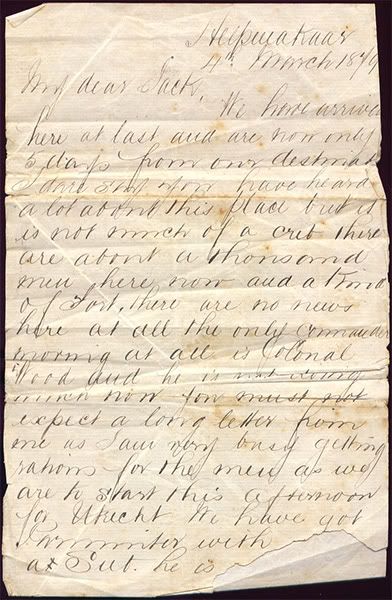 Helpmakaar
4th March 1879
My dear Jack,
We have arrived
here at last and are now only
5 days from our destinat
I dare say you have heard
a lot about this place but it
is not much of a crib there
are about a thousand
men here now and a kind
of Fort, there are no news
here at all the only commande
moving at all is Colonal
Wood and he is not doing
much now you must not
expect a long letter from
me as I am very busy getting
rations for the men as we
are to start this afternoon
for Utrecht We have got
with
a Sub. he is